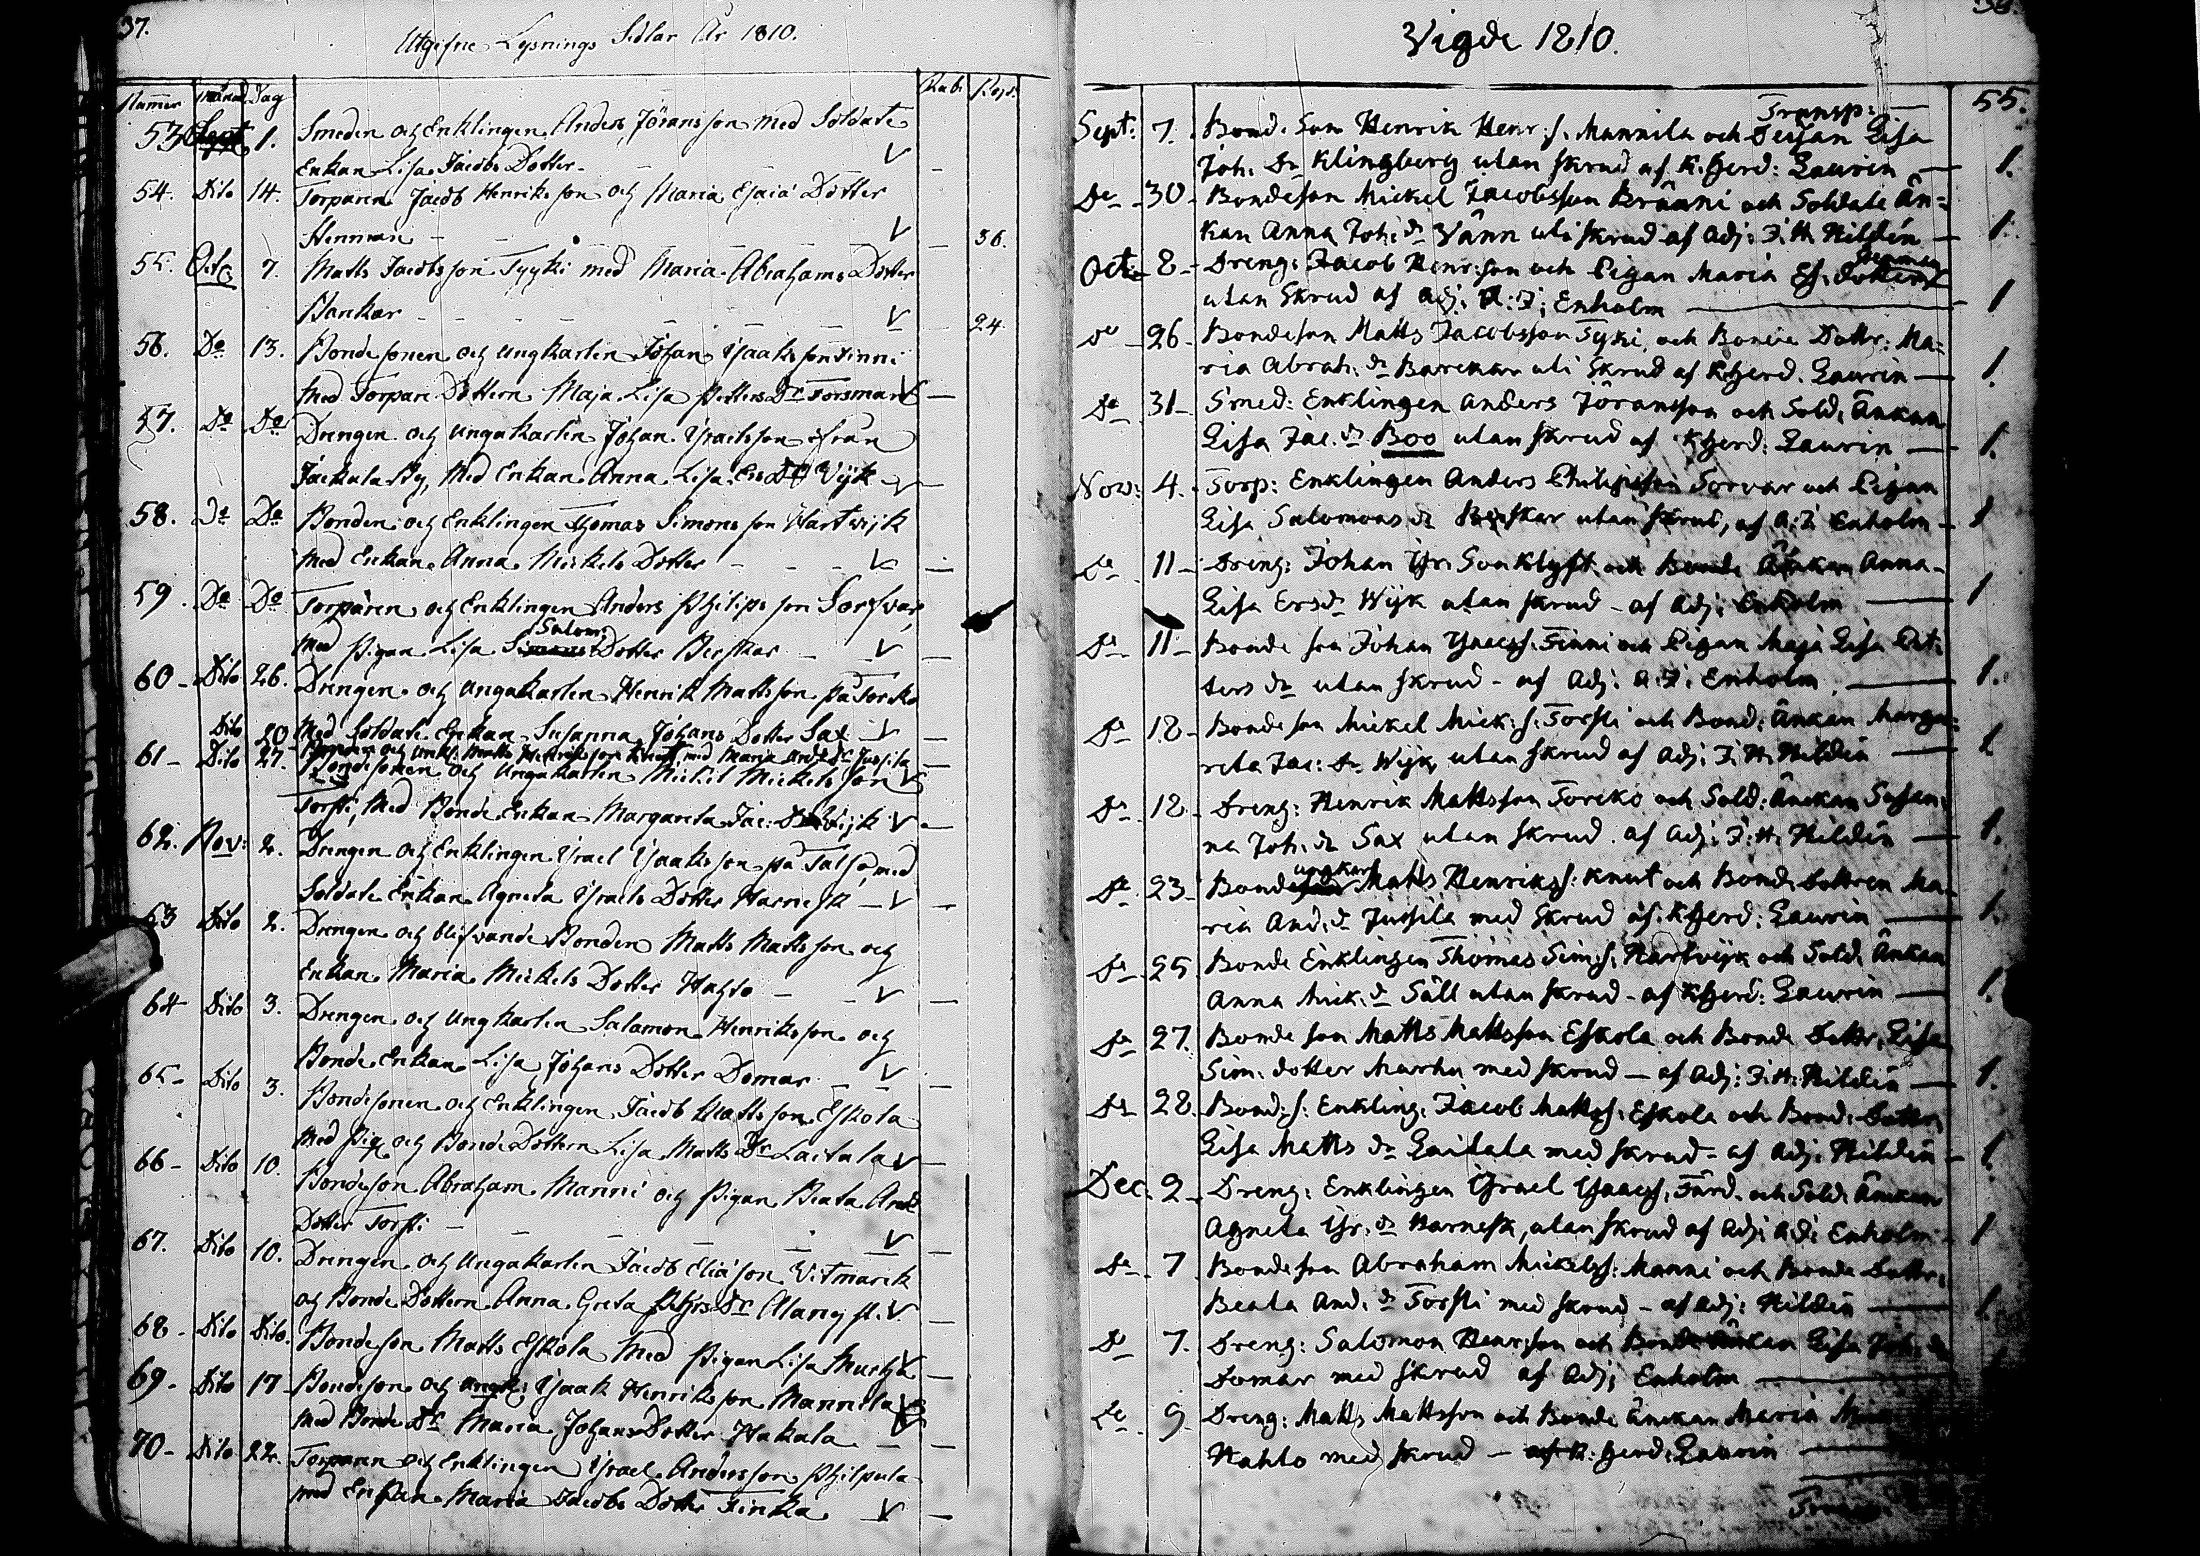 37.
Utgifne Lysnings Sedlar År 1810.
Nummer månad Dag Rub. Rxs.
53 Sept 1. Smeden och Enklingen Anders Jöransson med Soldate
Enkan Lisa Jacobs Dotter V
54. Dito 14. Torparen Jacob Henriksson och Maria Esaiæ Dotter
Henman V 36.
55. Octo 7. Matts Jacobsson Tyyki med Maria Abrahams Dotter
Bankar V 24.
56. Do 13. Bondesonen och ungkarlen Johan Ysaaksson Finni
med Torpare Dottern Maja Lisa Petters Dr Forsman V
57. Do Do Drengen och Ungakarlen Johan Ysraelsson ifrån
Jackula By, Med Enkan Anna Lisa Ers Dr Vijk V
58. Do Do Bonden och Enklingen Thomas Simonsson Hartvijk
med Enkan Anna Mickels Dotter V
59. Do Do Torparen och Enklingen Anders Philipsson Sorfvar,
Salom:
med Pigan Lisa Dotter Berskar V
60 Dito 26. Drengen och Ungakarlen Henrik Mattsson på Torcko
Med Soldate Enkan Susanna Johans Dotter Sax V
Dito 20 Bonden och unk: Matts Henriksson Knut, med Maria And: Dr Jussila
61 Dito 27. Bondesonen och Ungakarlen Mickel Mickelsson V
Torsti, Med Bonde Enkan Margareta Jac: Dr Wijk V
62. Nov: 2. Drengen och Enklingen Ysrael Ysaaksson på med
Soldate Enkan Agneta Ysraels Dotter Harnesk V
63 Dito 2. Drengen och blifvande Bonden Matts Mattsson och
Enkan Maria Mickels Dotter Hahto V
64 Dito 3. Drengen och Ungkarlen Salamon Henriksson och
Bonde Enkan Lisa Johans Dotter Domar V
65 Dito 3. Bondesonen och Enklingen Jacob Mattsson Eskola
Med Pig och Bonde Dottern Lisa Matts Dr Laitala V
66 Dito 10. Bondeson Abraham Manni och Pigan Beata And:
Dotter Torsti V
67. Dito 10. Drengen och Ungakarlen Jacob Eliæson Vitmarck
och Bonde Dottern Anna Greta Pehrs Dr V
68 Dito Dito. Bondeson Matts Eskola Med Pigan Lisa V
69 Dito 17 Bondeson och ungk: Ysaak Henriksson Mannila
med Bonde Dr Maria Johans Dotter Hakala
70 Dito 22. Torparen och Enklingen Ysrael Andersson Philpula
med Enkan Maria Jacobs Dotter Finka V
Vigde 1810.
Transp: 55.
Sept: 7. Bond. Son Henrik Henr:s. Mannila och Pigan Lisa
Joh. Dr Klingberg utan skrud af K.herd: Laurin 1.
Do 30 Bondeson Mickel Jacobsson Bränni och Soldate Än-
kan Anna Joh: dr Vänn uti skrud af Adj: J. H. Hildén 1.
Henman
Octo 8 Dreng: Jacob Henr:son och Pigan Maria Es. dotter
utan Skrud af Adj. A: J: Enholm 1
Do 26 Bondeson Matts Jacobsson Tyki, och Bonde Dottr: Ma-
ria Abrah: dr Banckar uti Skrud af K.herd. Laurin 1.
Do 31 Smed: Enklingen Anders Jöransson och Sold, Änkan
Lisa Jac. dr Boo utan skrud af Kherd: Laurin 1.
Nov: 4. Torp: Enklingen Anders Philipsson Sorvar och Pigan
Lisa Salomons dr Berskar utan skrud, af A: J. Enholm 1
Do 11 Dreng: Johan Isr: Son Klyft och Bonde Änkan Anna
Lisa Ersdr Wijk utan skrud af Adj: Enholm 1
Do 11 Bonde son Johan Ysaacs: Finni och Pigan Maja Lisa Pet-
ters dr utan skrud af Adj: A. J: Enholm 1.
Do 18 Bonde son Mickel Mick: s. Torsti och Bond: Änkan Marga-
reta Jac: dr Wijk utan skrud af Adj: J: H: Hildén 1
Do 18 Dreng: Henrik Mattsson Torcko och Sold: Änckan Susan-
na Joh: dr Sax utan skrud af Adj: J: H: Hildén 1.
ungkarl
Do 23 Bonde Matts Henriks: Knut och Bond. Dottren Ma-
ria And: dr Jussila med skrud af Kherd: Laurin 1.
Do 25 Bonde Enklingen Thomas Sim:s. Hartvijk och Sold. Änkan
Anna Mick: dr Säll utan skrud af Kherd: Laurin 1.
Do 27. Bonde son Matts Mattsson Eskola och Bonde Dottr: Lisa
Sim: dotter med skrud af Adj: J: H: Hildén 1.
Do 28. Bond: s: Enkling: Jacob Matts: Eskola och Bond: Dottr:
Lisa Matts dr Laitala med skrud af Adj: Hildén 1.
Dec. 2 Dreng: Enklingen Ysrael Ysaacs: Färd. och Sold: Änckan
Agneta Isr: dr Harnesk, utan skrud af Adj: A: J: Enholm 1
Do 7 Bondeson Abraham Mickels: Manni och Bonde Dottr:
Beata And: dr Torsti med skrud af Adj: Hildén 1.
Do 7. Dreng: Salomon Henr:son och Bonde Änkan Lisa Joh: dr
Domar med skrud af Adj: Enholm
Do 9 Dreng: Matts Mattsson och Bonde Änckan Maria
Hahto med skrud af K: herd: Laurin